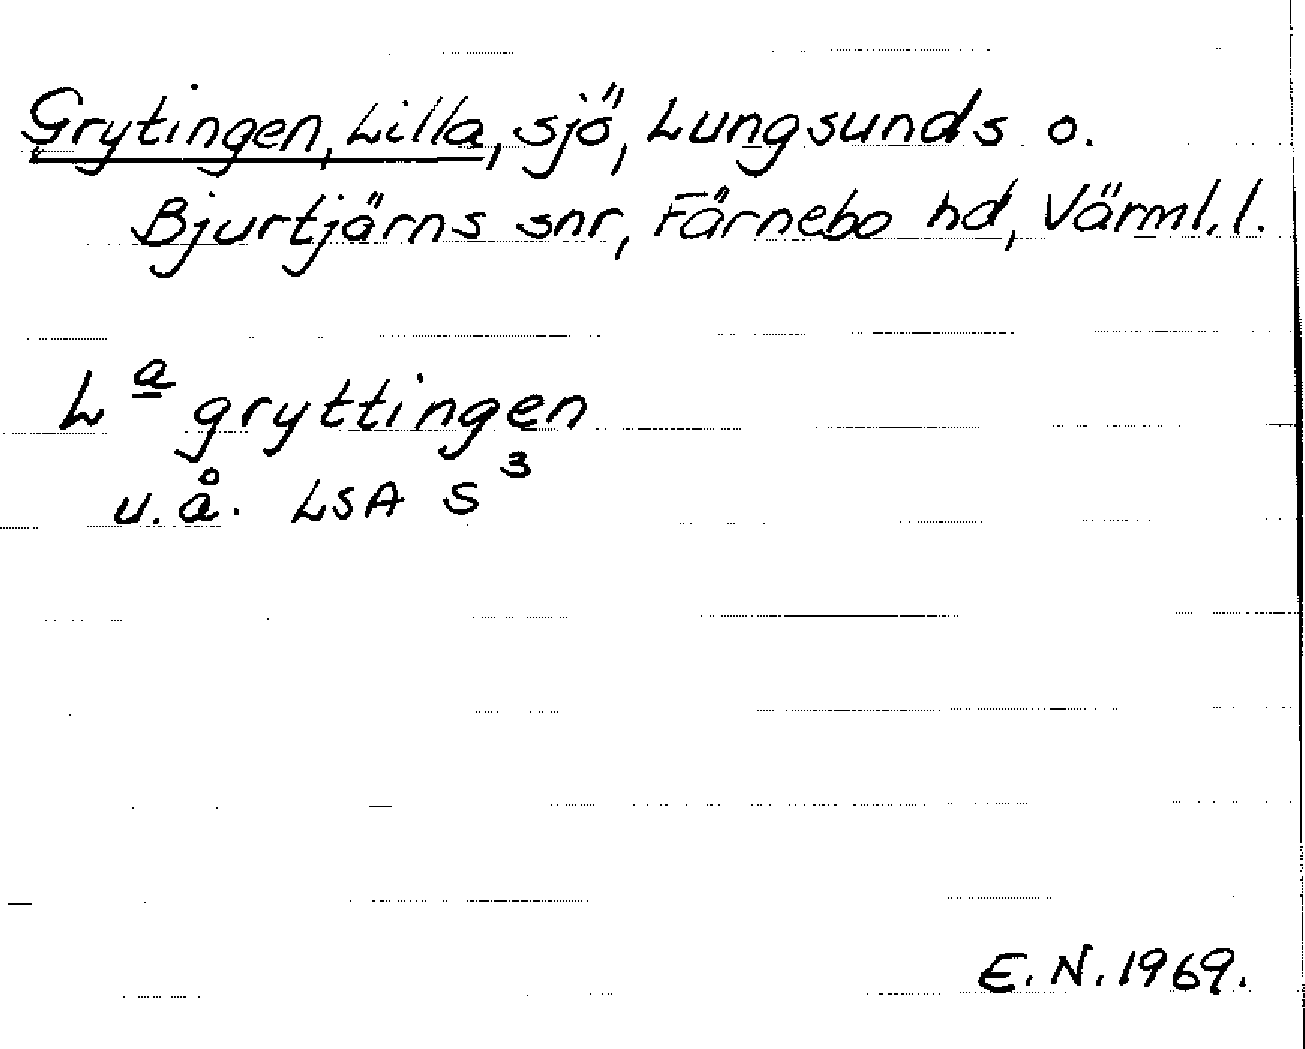 Grytingen, Lilla, sjö, Lungsunds o.
Bjurtjärns snr, Färnebo hd, Värml. l.
La gryttingen
u. å. LSA S3
E. N. 1969.